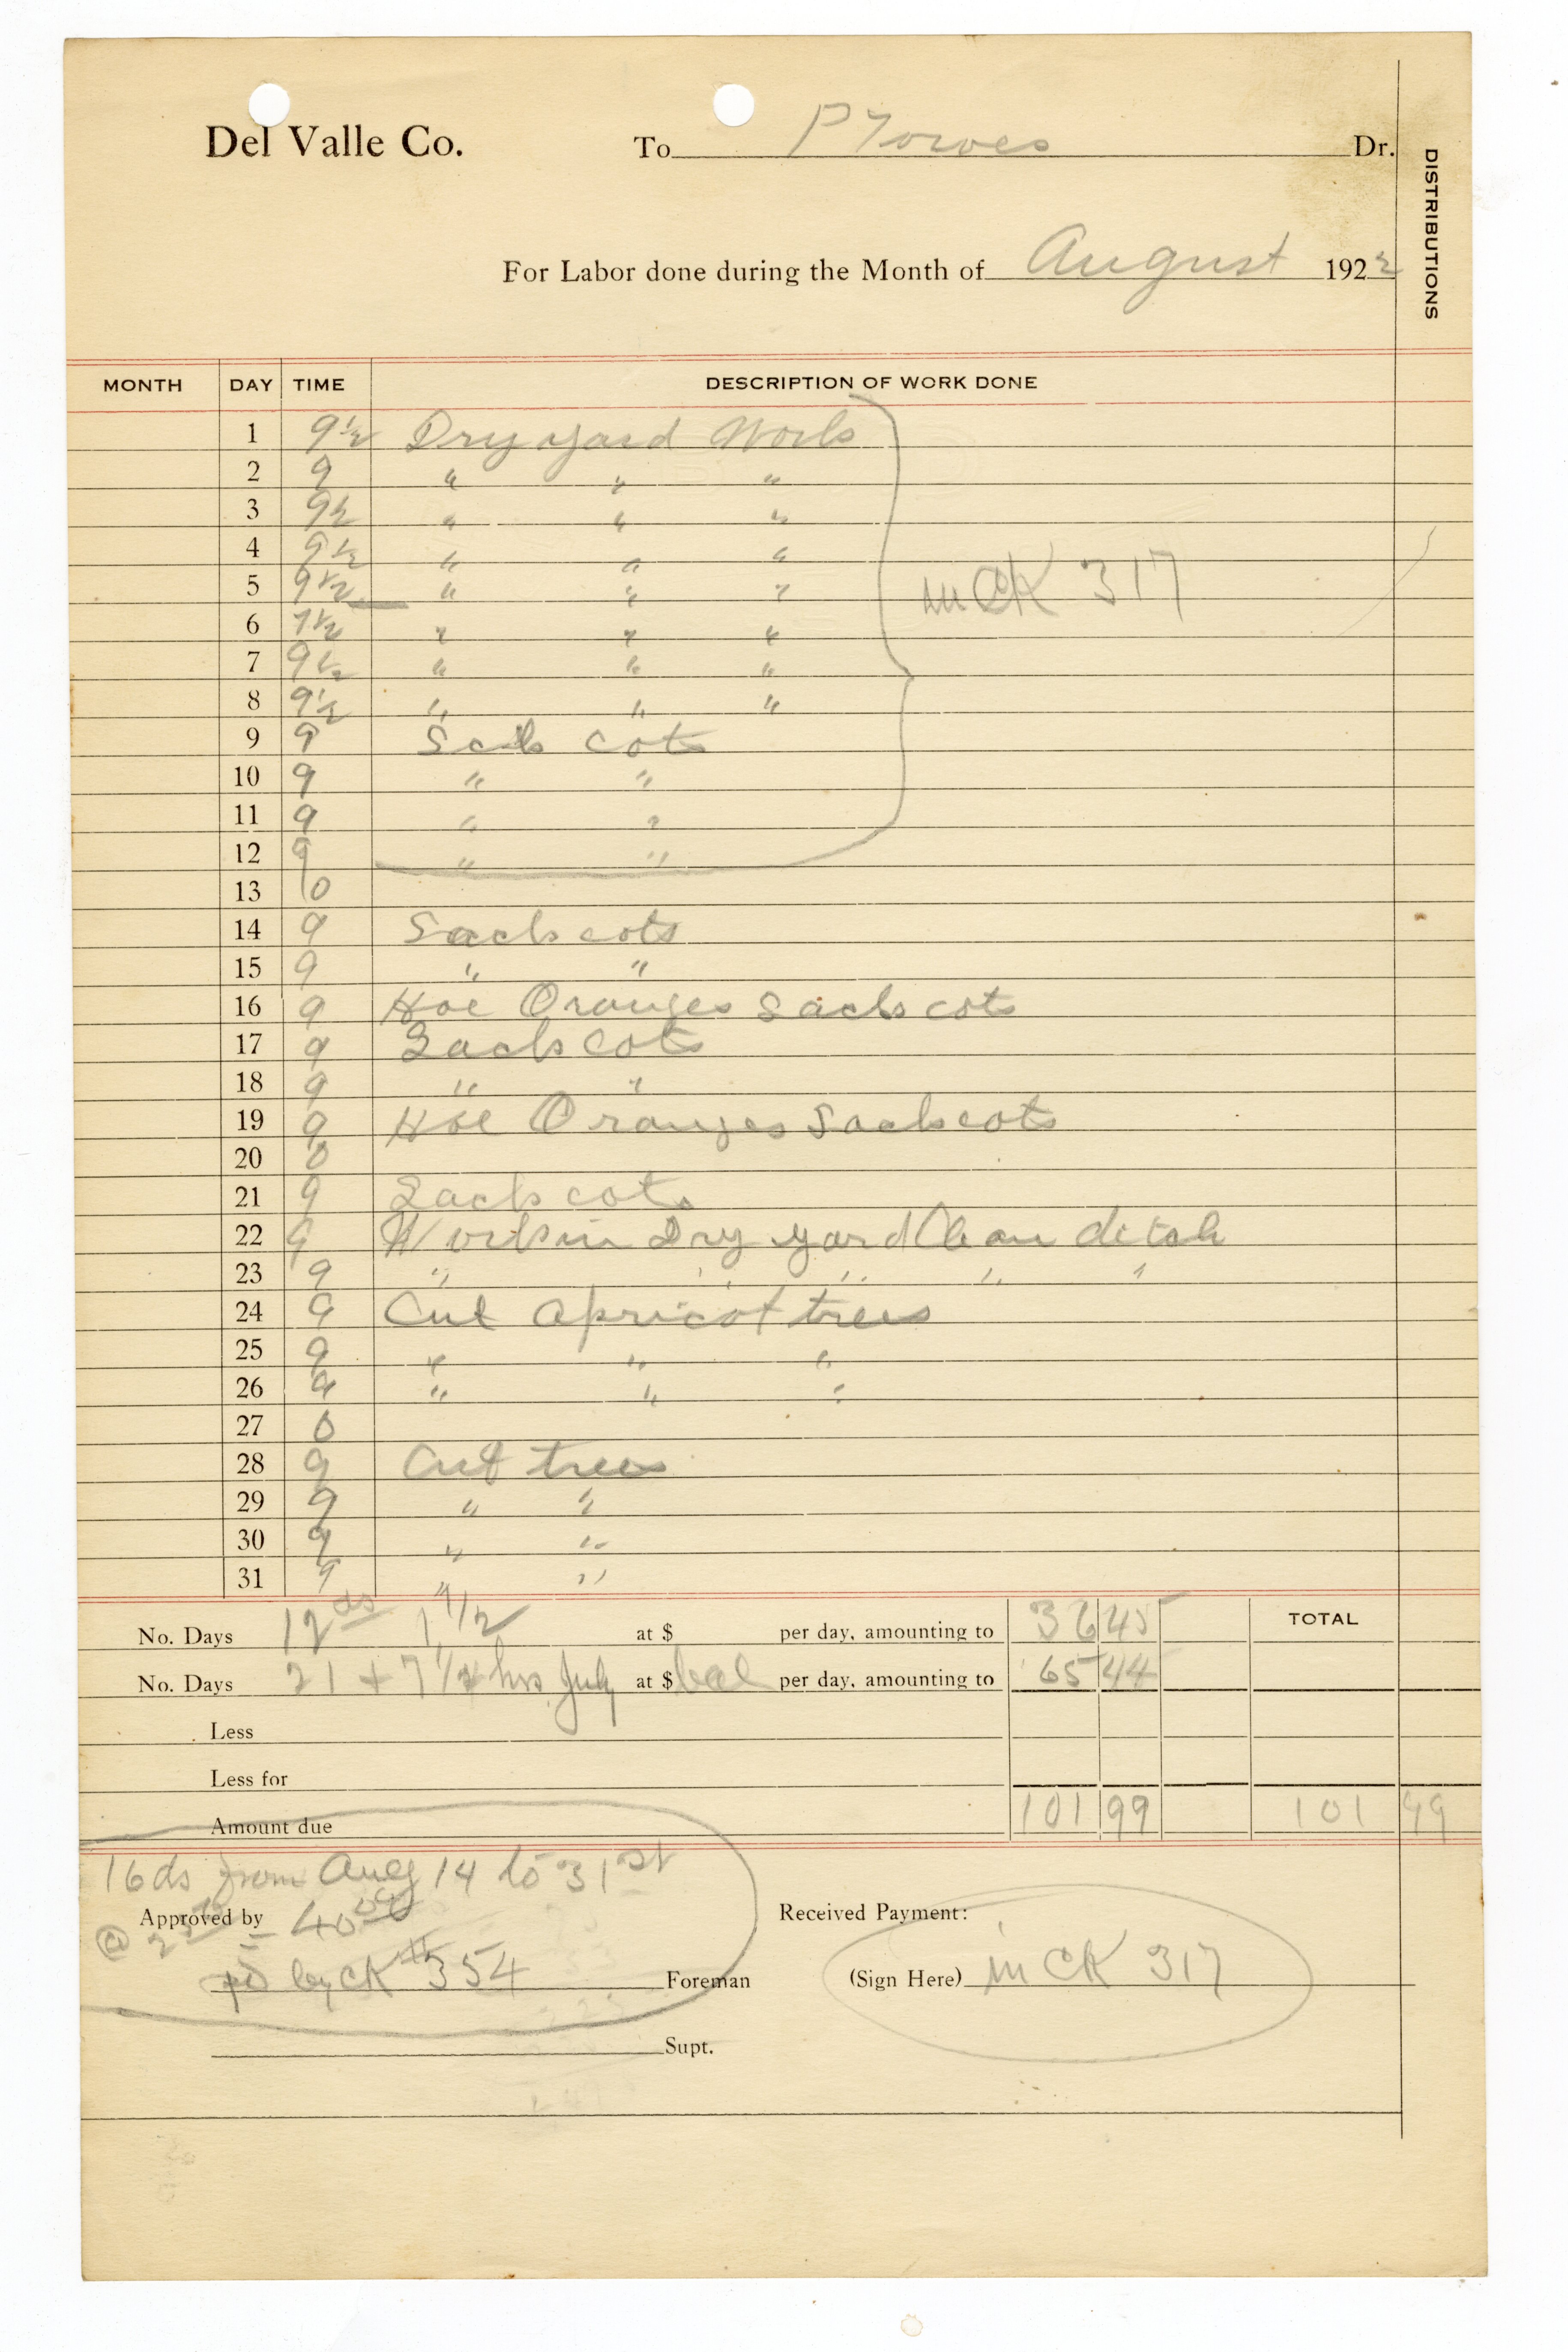 Del Valle Co. To P Torres Dr.
DISTRIBUTIONS
For Labor done during the Month of August 1922
MONTH DAY TIME DESCRIPTION OF WORK DONE
1 9½ Dry yard Work
2 9 " " "
3 9½ " " "
4 9½ " " "
5 9½ " " "
in CK 317
6 7½ " " "
7 9½ " " "
8 9½ " " "
9 9 Sack cots
10 9 " "
11 9 " "
12 9 " "
13 0
14 9 Sack cots
15 9 " "
16 9 Hoe Oranges Sack cots
17 9 Sack cots
18 9 " "
19 9 Hoe Oranges Sack cots
20 0
21 9 Sack cots
22 9 Work in Dry yard Clean ditch
23 9 " " " " "
24 9 Cut apricot trees
25 9 " " "
26 9 " " "
27 0
28 9 Cut trees
29 9 " "
30 9 " "
31 9 " "
No. Days 12 ds 1 ½ at $ per day, amounting to 36 45 TOTAL
No. Days 21 + 7½ hrs July at $ bal per day, amounting to 65 44
Less
Less for
Amount due 101 99 101 99
16 ds from Aug 14 to 31st
Approved by @ = 40 00 Received Payment:
pd by CK # 354 Foreman (Sign Here) in CK 317
Supt.